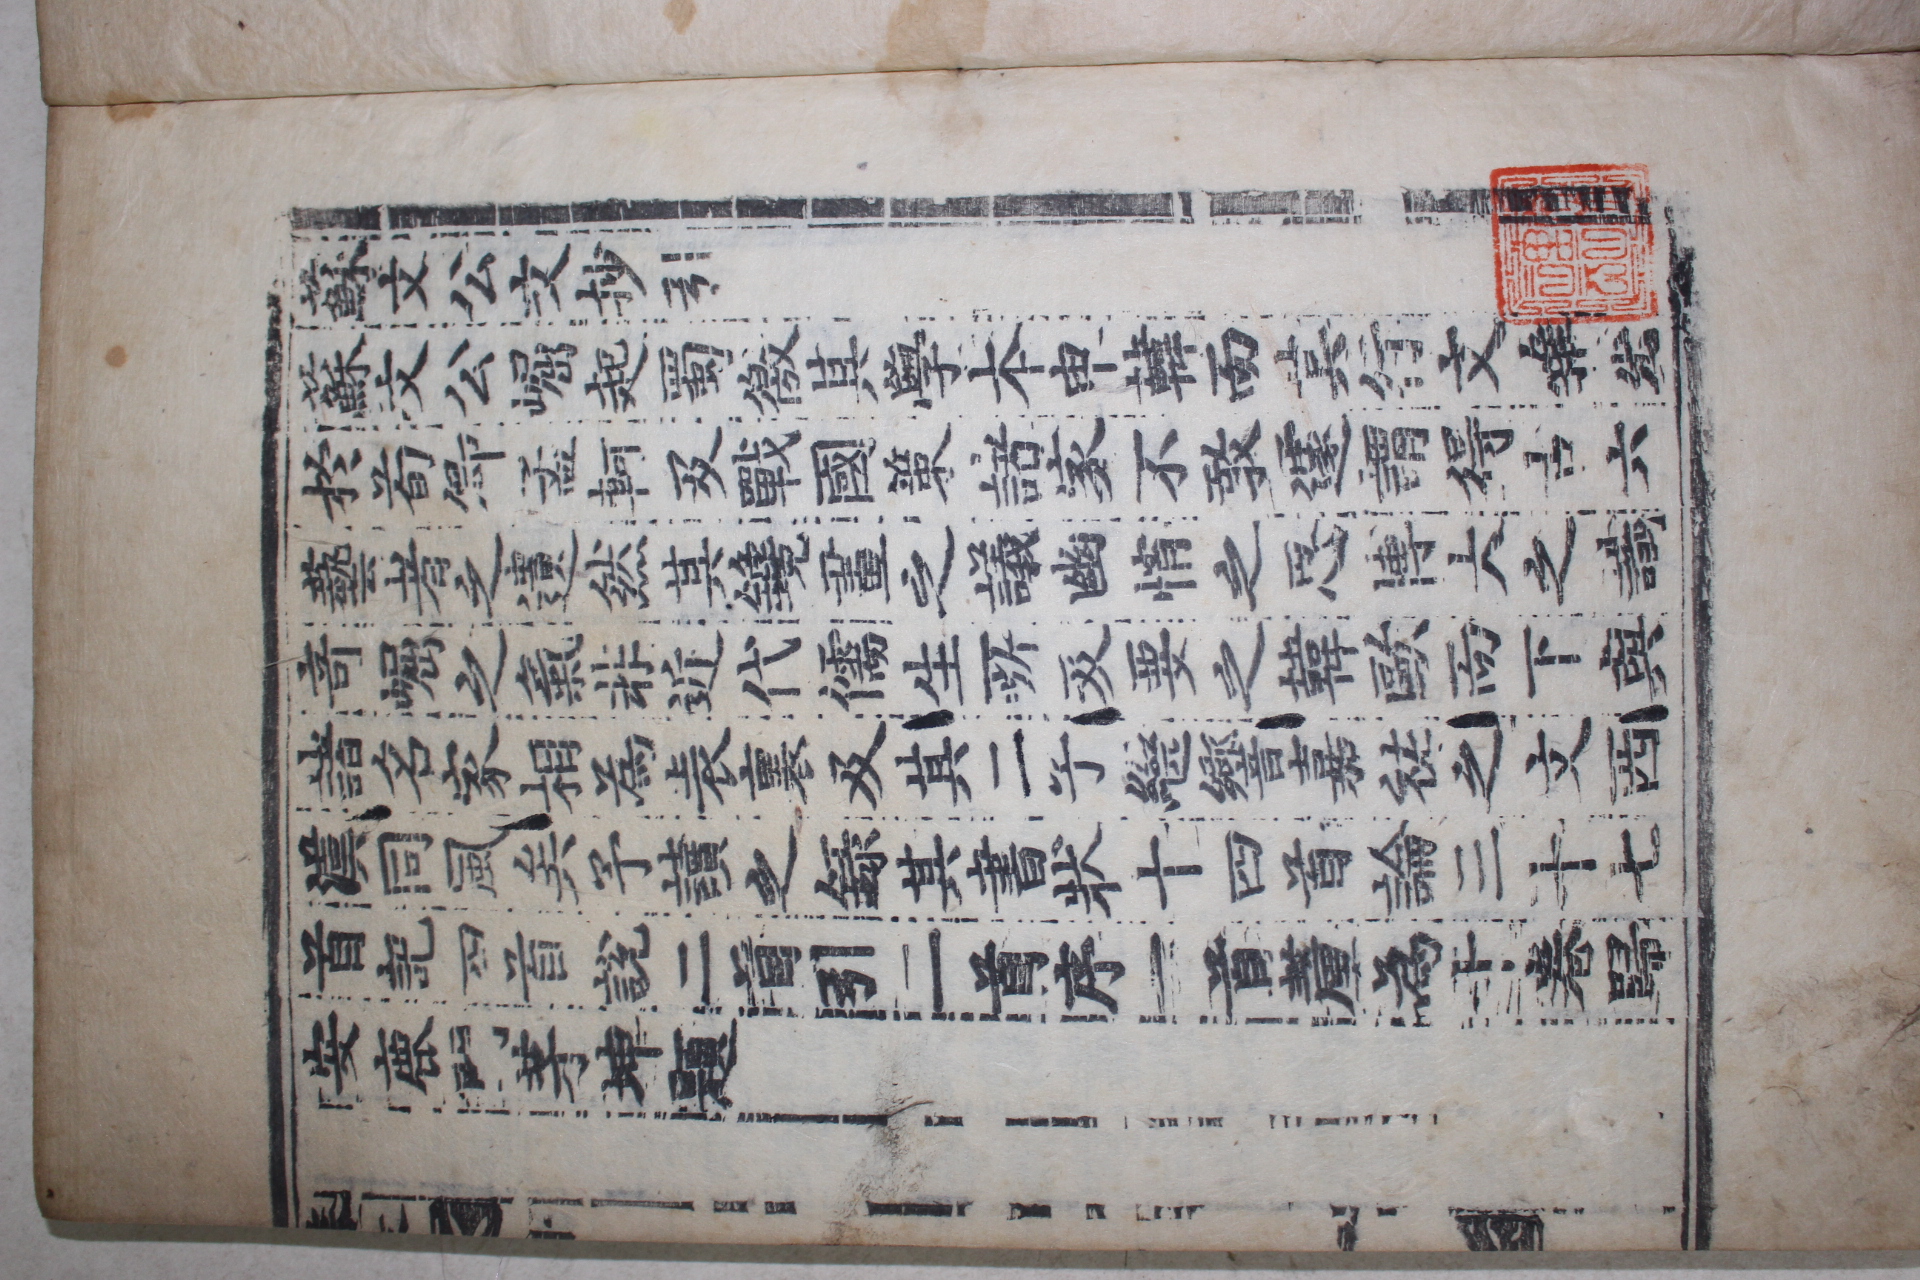 蘇文公文抄引
蘇文公崛起蜀徼其學本申韓而其行文雜出
於荀卿孟軻及戰國策諸家不敢遽謂得古六
藝者之遺然其鑱畫之議幽悄之思博大之議
奇崛之氣非近代儒生所及要之韓歐而下與
諸名家相為表裏及其二子繼響嘉祐之文西
漢同風矣予讀之錄其書狀十四首論三十七
首記四首說二首引二首序一首釐為十卷歸
安鹿門茅坤題